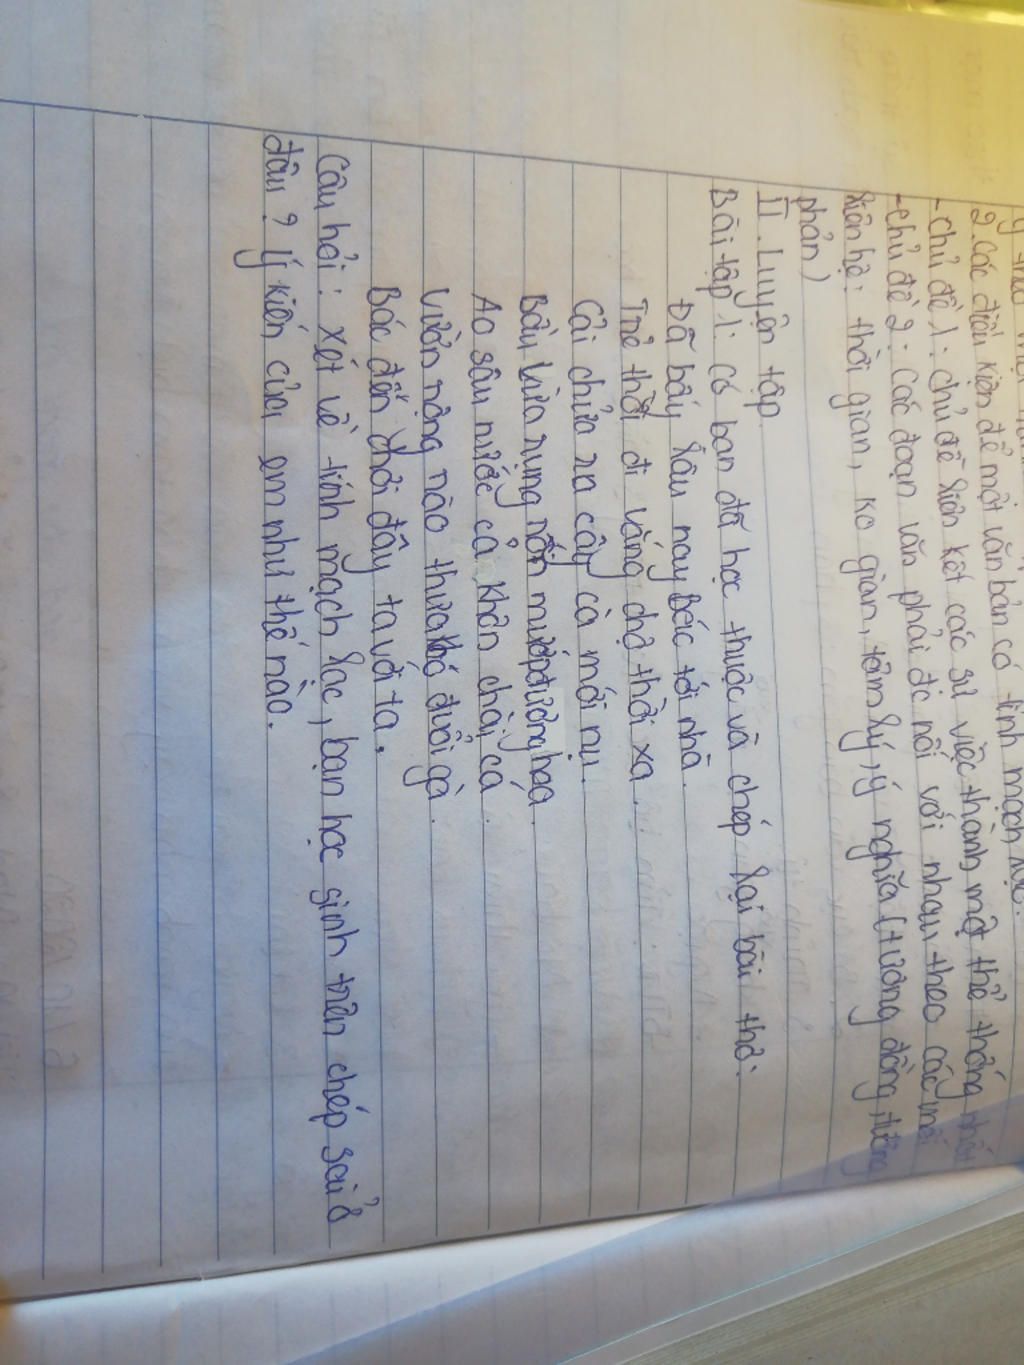 2. Các điều kiện để một văn bản có tính mạch lạc.
- Chủ đề 1: chủ đề liên kết các sự việc thành một thể thống nhất
- Chủ đề 2: Các đoạn văn phải đc nối với nhau theo các mối
liên hệ: thời gian, ko gian, tâm lý, ý nghĩa (tương đồng, tương
phản)
II. Luyện tập.
Bài tập 1: có bạn đã học thuộc và chép lại bài thơ:
Đã bấy lâu nay bác tới nhà.
Trẻ thời đi vắng chợ thời xa.
Cải chửa ra cây cà mới nụ.
Bầu vừa rụng rốn mướp đương hoa.
Ao sâu nước cả khôn chài cá.
Vườn rộng rào thưa khó đuổi gà.
Bác đến chơi đây ta với ta.
Câu hỏi: xét về tính mạch lạc, bạn học sinh trên chép sai ở
đâu? Ý kiến của em như thế nào.